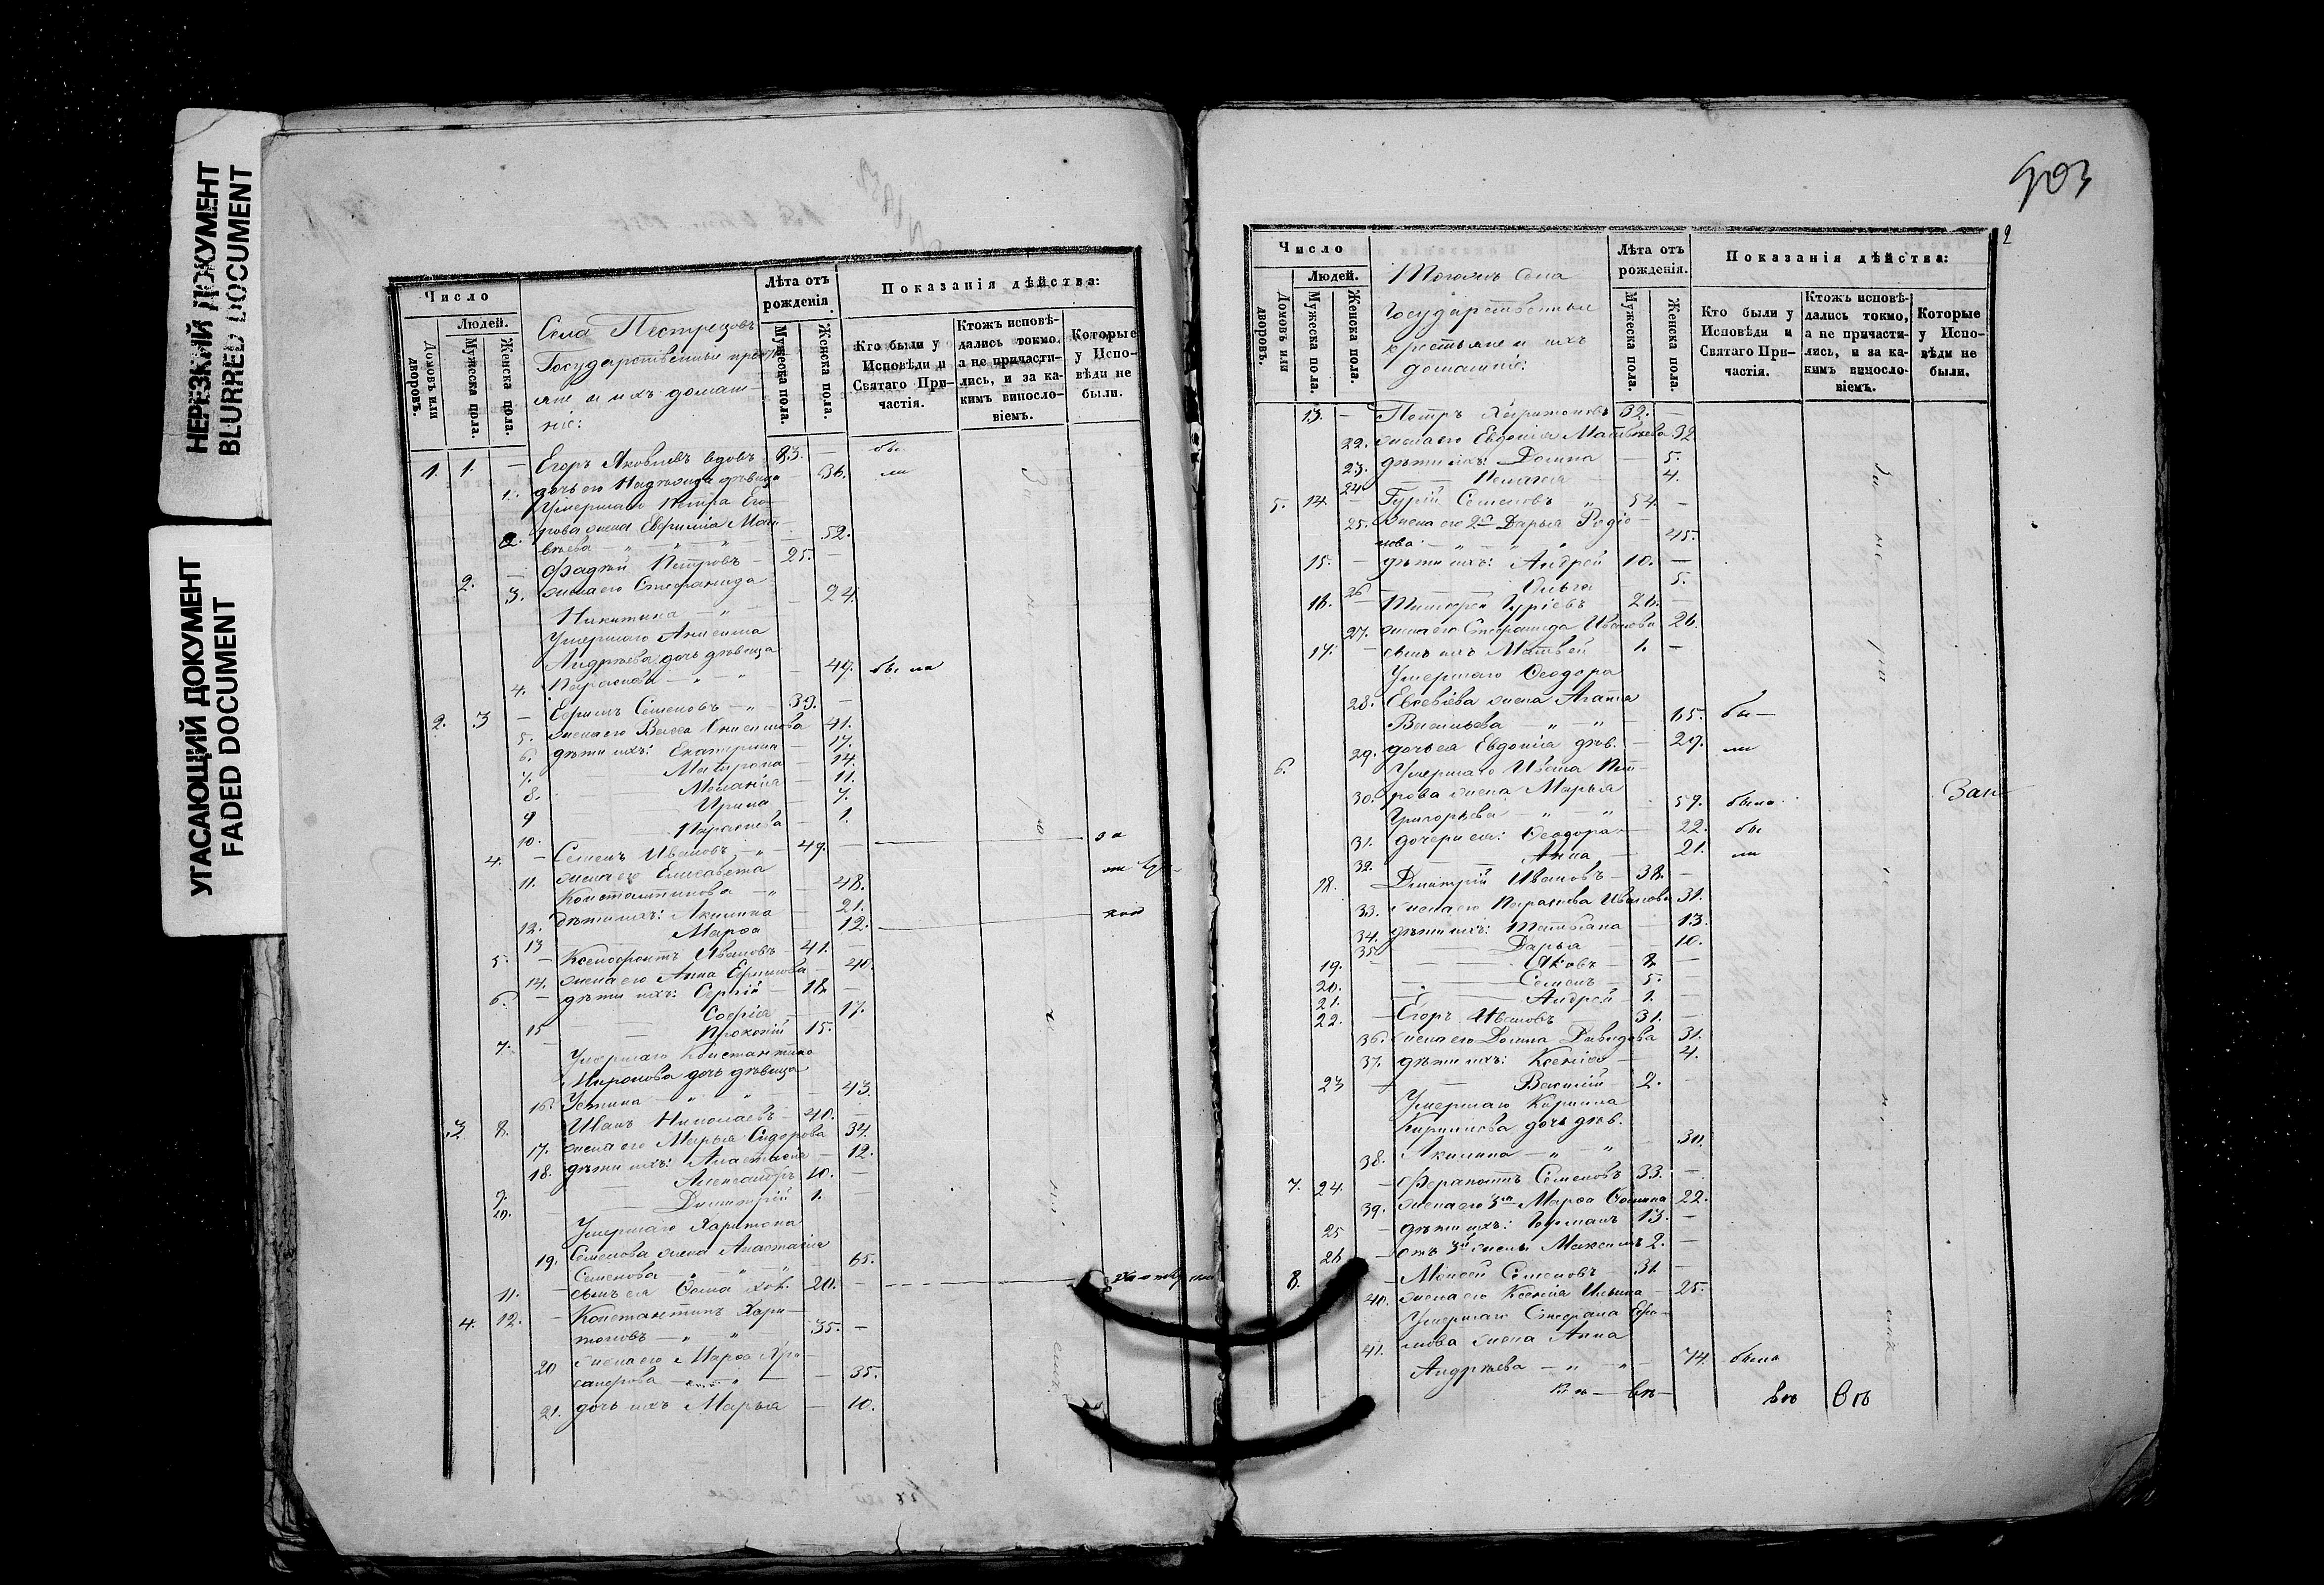 НЕРЕЗКИЙ ДОКУМЕНТ
BLURRED DOCUMENT
УГАСАЮЩИЙ ДОКУМЕНТ
FADED DOCUMENT
Число
Людей.
Домовъ или дворовъ.
Мужеска пола.
Женска пола.
Села Пестрецовъ
Государственные крестья
не и ихъ домаш-
ніе:
Лѣта отъ рожденія.
Мужеска пола.
Женска пола.
Показанія дѣйства:
Кто были у Исповѣди и Святаго При-частія.
Ктожъ исповѣ-дались токмо, а не причасти-лись, и за ка-кимъ виносло-віемъ.
Которые у Испо-вѣди не были.
1. 1. — Егоръ Яковлевъ вдовъ 83. — бы
1. дочь его Надежида дѣвица — 36. ли
Умершаго Петра Его-
2. рова жена Евфимія Мат-
вѣева — 52.
2. — Фадѣй Петровъ — 25. —
3. жена его Стефанида
Никитина — 24.
Умершаго Анисима
Андрѣева дочь дѣвица
4. Параскева — 49. бы ли
2. 3 — Ефимъ Семеновъ — 39. —
5. жена его Васса Анисимова 41.
6. дѣти ихъ: Екатерина — 17.
7. Матрона — 14.
8. Меланія — 11.
9 Ирина — 7.
10. Параскева — 1.
4. — Семенъ Ивановъ — 49. — за
11. жена его Елисавета
Константинова — 48.
12. дѣти ихъ: Акилина — 21.
13 Марѳа 12.
5. — Ксенофонтъ Ивановъ — 41. —
14. жена его Анна Ефимова — 40.
6. — дѣти ихъ: Сергій — 18. —
15 Софія — 17.
7. — Прокопій 15.
Умершаго Константина
Миронова дочь дѣвица
16. Устина — 43.
3. 8. Иванъ Николаевъ — 40. —
17. жена его Марья Сидорова 34.
18. дѣти ихъ: Анастасія — 12.
9. Александръ 10. —
10. Димитрій 1. —
Умершаго Харитона
19. Семенова жена Анастасія
Семенова — 65.
11. — сынъ ея Ѳома хол. 20. —
4. 12. — Константинъ Хари-
тоновъ — 35. —
20 жена его Марѳа
— 35.
21. дочь ихъ Марья — 10.
903
2
Число
Людей.
Домовъ или дворовъ.
Мужеска пола.
Женска пола.
Тогожъ Села
Государственные
крестьяне и ихъ
домашніе:
Лѣта отъ рожденія.
Мужеска пола.
Женска пола.
Показанія дѣйства:
Кто были у Исповѣди и Святаго При-частія.
Ктожъ исповѣ-дались токмо, а не причасти-лись, и за ка-кимъ виносло-віемъ.
Которые у Испо-вѣди не были.
13. — Петръ Харитоновъ 32. —
22. жена его Евдокія Матвѣева 32
23. дѣти ихъ: Домна — 5.
24 Пелагея 4.
5. 14. — Гурій Семеновъ 54. —
25. жена его 2я Дарья Родіо-
нова 45.
15. — дѣти ихъ: Андрей 10. —
26 Ольга 5.
16. — Тимофей Гуріевъ 26. —
27. жена его Стефанида Иванова 26.
17. — сынъ ихъ Матвей 1. —
Умершаго Ѳеодора
28. Евсевіева жена Агапія
Васильева — 65. бы—
29. дочь ея Евдокія дѣв. — 29. ли
6. Умершаго Ивана Пет-
30. рова жена Марья
Григорьева 59. была
31. дочери ея: Ѳеодора — 22. бы
32. Анна — 21. ли
18. Димитрій Ивановъ — 38. —
33. жена его Параскева Иванова 31.
34. дѣти ихъ: Татьяна — 13.
35 Дарья — 10.
19. Яковъ — 8 —
20. Семенъ — 5. —
21. Андрей 1. —
22. — Егоръ Ивановъ 31. —
36. жена его Домна Давидова 31.
37. дѣти ихъ: Ксенія — 4.
23 — Василій 2. —
Умершаго Кирилла
Кириллова дочь дѣв.
38. Акилина — 30.
7. 24. — Ферапонтъ Семеновъ 33. —
39. жена его 3я Марѳа Ѳомина 22.
25 — дѣти ихъ: Германъ 13. —
26 — отъ 3й жены Максимъ 2. —
8. — Моисей Семеновъ 31. —
40. жена его Ксенія Ильина — 25.
Умершаго Стефана Ефи-
41. мова жена Анна
Андрѣева — 74. была